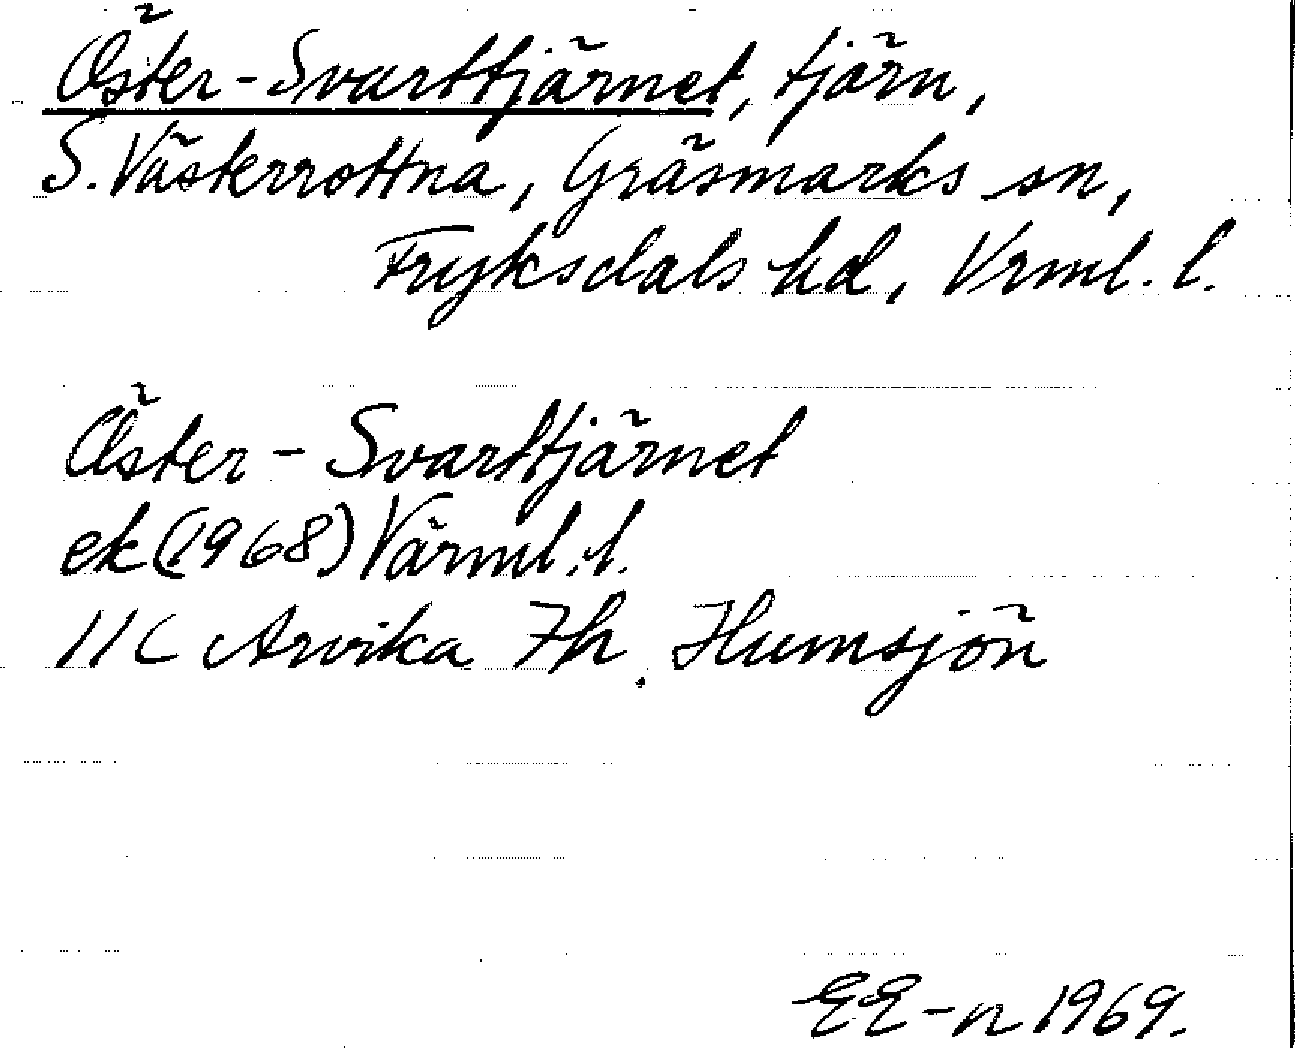 Öster-Svarttjärnet, tjärn,
S. Västerrottna, Gräsmarks sn,
Fryksdals hd, Vrml. l.
Öster-Svarttjärnet
ek (1968) Värml. l.
11C Arvika 7h. Humsjön
EE-n 1969.